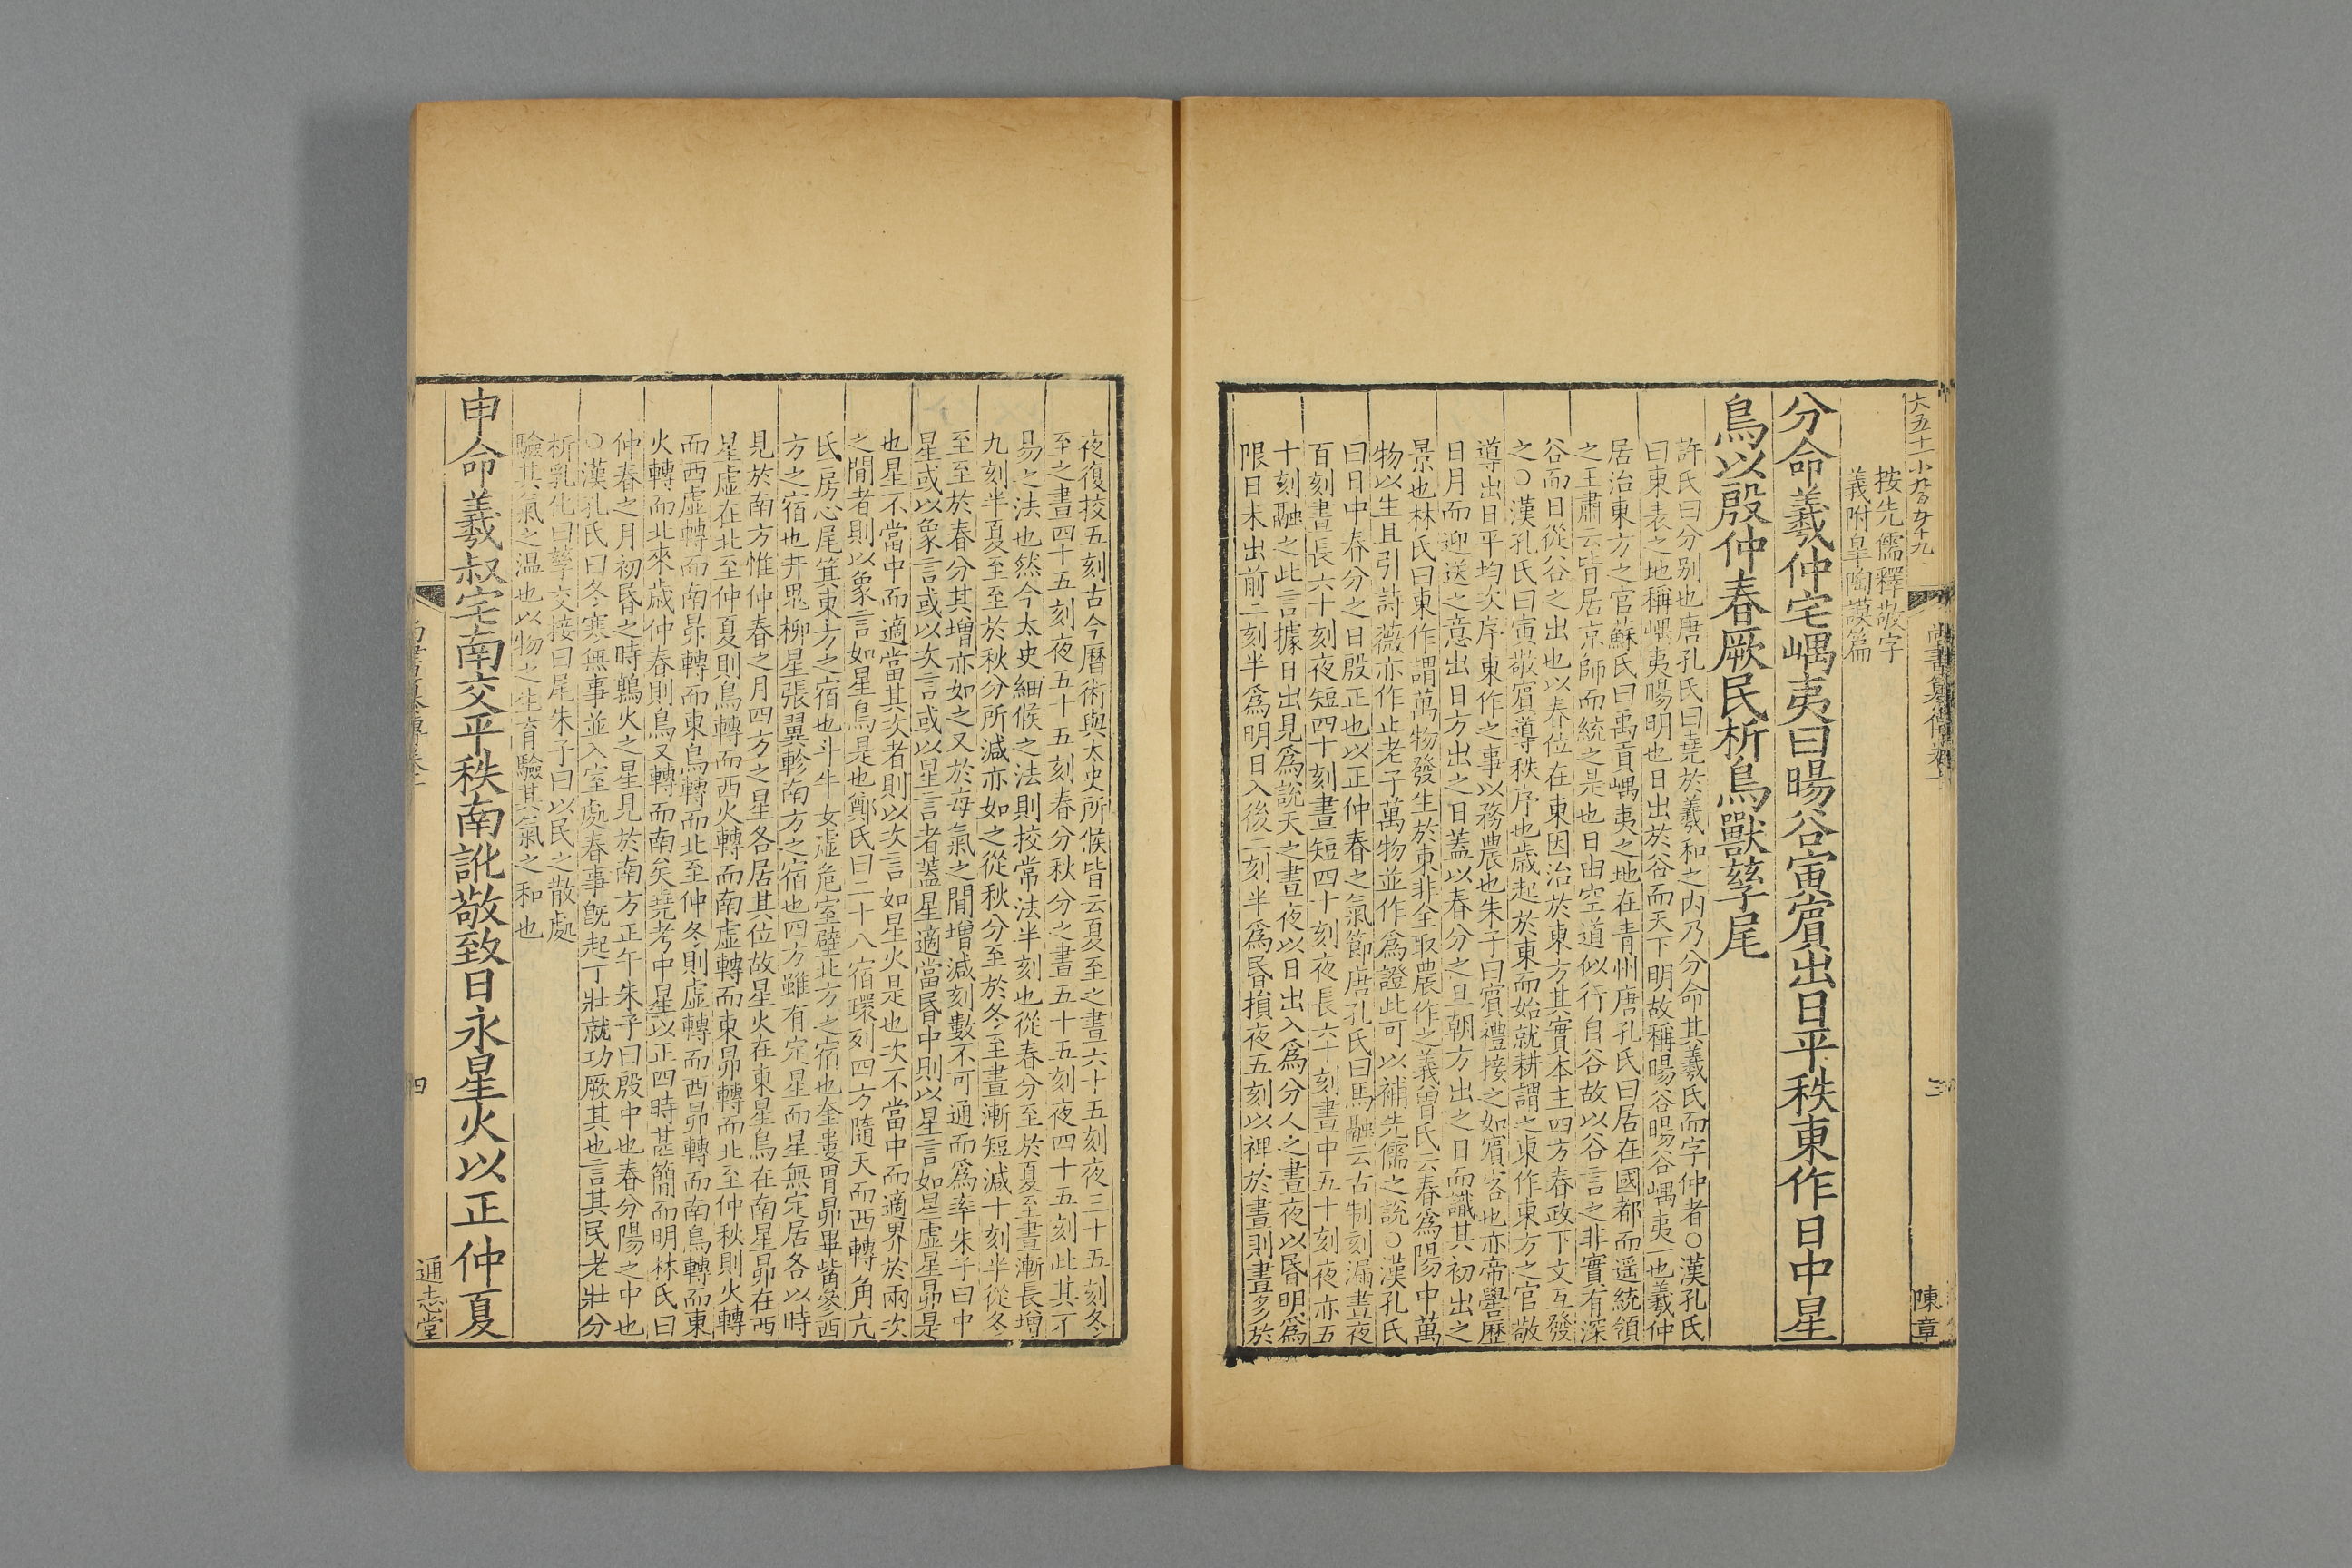 大五十一小九百九十九
尚書纂傳卷一
三
陳章
按先儒釋敬字
義附皐陶謨篇
分命羲仲宅嵎夷曰暘谷寅賓出日平秩東作日中星
鳥以殷仲春厥民析鳥獸孳尾
許氏曰分别也唐孔氏曰堯於羲和之内乃分命其羲氏而字仲者○漢孔氏
曰東表之地稱嵎夷暘明也日出於谷而天下明故稱暘谷暘谷嵎夷一也羲仲
居治東方之官蘇氏曰禹貢嵎夷之地在青州唐孔氏曰居在國都而遥統領
之王肅云皆居京師而統之是也日由空道似行自谷故以谷言之非實有深
谷而日從谷之出也以春位在東因治於東方其實本主四方春政下文互發
之○漢孔氏曰寅敬賓導秩序也歳起於東而始就耕謂之東作東方之官敬
導出日平均次序東作之事以務農也朱子曰賓禮接之如賓客也亦帝嚳歷
日月而迎送之意出日方出之日蓋以春分之旦朝方出之日而識其初出之
景也林氏曰東作謂萬物發生於東非全取農作之義曽氏云春爲陽中萬
物以生且引詩薇亦作止老子萬物並作爲證此可以補先儒之說○漢孔氏
曰日中春分之日殷正也以正仲春之氣節唐孔氏曰馬融云古制刻漏晝夜
百刻晝長六十刻夜短四十刻晝短四十刻夜長六十刻晝中五十刻夜亦五
十刻融之此言據日出見爲說天之晝夜以日出入爲分人之晝夜以昬明爲
限日未出前二刻半爲明日入後二刻半爲昬損夜五刻以裨於晝則晝多於
夜復挍五刻古今曆術與太史所候皆云夏至之晝六十五刻夜三十五刻冬
至之晝四十五刻夜五十五刻春分秋分之晝五十五刻夜四十五刻此其不
易之法也然今太史細候之法則挍常法半刻也從春分至於夏至晝漸長増
九刻半夏至至於秋分所減亦如之從秋分至於冬至晝漸短減十刻半從冬
至至於春分其増亦如之又於每氣之間増減刻數不可通而爲率朱子曰中
星或以象言或以次言或以星言者蓋星適當昬中則以星言如星虛星昴是
也星不當中而適當其次者則以次言如星火是也次不當中而適界於兩次
之間者則以象言如星鳥是也鄭氏曰二十八宿環列四方隨天而西轉角亢
氐房心尾箕東方之宿也斗牛女虛危室壁北方之宿也奎婁胃昴畢觜參西
方之宿也井鬼柳星張翼軫南方之宿也四方雖有定星而星無定居各以時
見於南方惟仲春之月四方之星各居其位故星火在東星鳥在南星昴在西
星虛在北至仲夏則鳥轉而西火轉而南虛轉而東昴轉而北至仲秋則火轉
而西虛轉而南昴轉而東鳥轉而北至仲冬則虛轉而西昴轉而南鳥轉而東
火轉而北來歳仲春則鳥又轉而南矣堯考中星以正四時甚簡而明林氏曰
仲春之月初昬之時鶉火之星見於南方正午朱子曰殷中也春分陽之中也
○漢孔氏曰冬寒無事並入室處春事旣起丁壯就功厥其也言其民老壯分
析乳化曰孳交接曰尾朱子曰以民之散處
驗其氣之温也以物之生育驗其氣之和也
申命羲叔宅南交平秩南訛敬致日永星火以正仲夏
四
通志堂